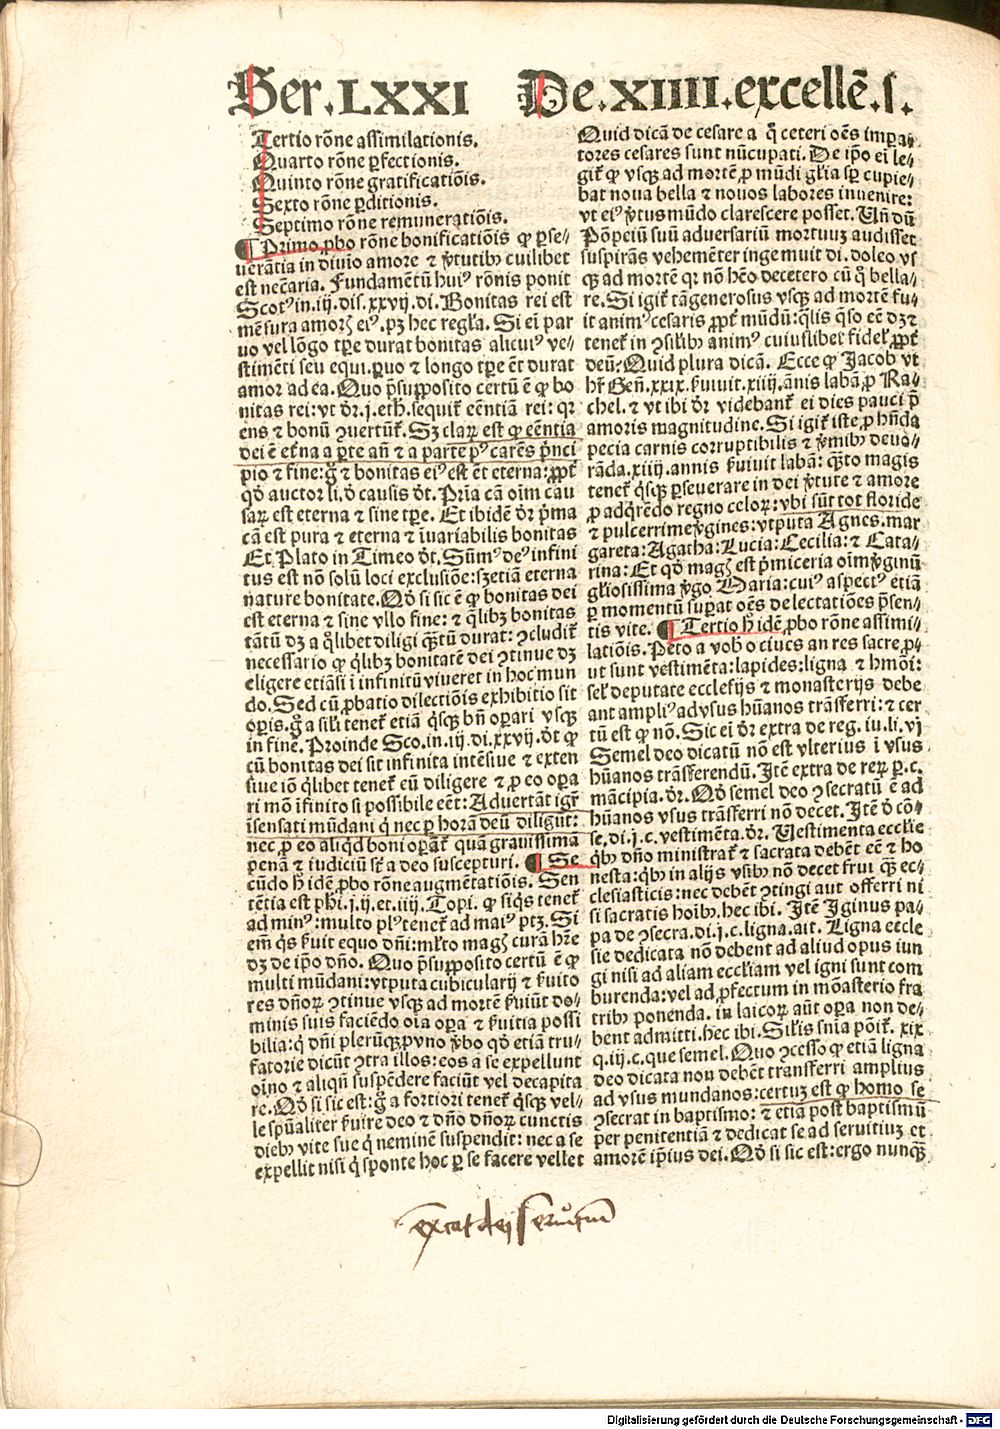 Ser. LXXI De. XIIII. excellē. s.
Tertio rōne assimilationis.
Quarto rōne ꝑfectionis.
Quinto rōne gratificatiōis.
Sexto rōne ꝑditionis.
Septimo rōne remuneratiōis.
¶ Primo ꝓbo rōne bonificatiōis ꝙ ꝑse-
uerātia in diuino amore ⁊ v̓tutibꝰ cuilibet
est necāria. Fundamētū huiꝰ rōnis ponit
Scotꝰ in.iij.dis.xxvij.di. Bonitas rei est
mēsura amorꝭ eiꝰ. pꝫ hec regla. Si ei par
uo vel lōgo tꝑe durat bonitas alicuiꝰ ve-
stimēti seu equi. ꝑuo ⁊ longo tꝑe ēt durat
amor ad ea. Quo p̄supposito certū ē ꝙ bo
nitas rei: vt d̓r.j.eth. sequit̓ eēntiā rei: qꝛ
ens ⁊ bonū ꝯuertūt̓. Sꝫ claꝝ est ꝙ eēntia
dei ē etn̓a a ꝑte añ ⁊ a parte pꝰ carēs p̓nci
pio ⁊ fine: g̊ ⁊ bonitas eiꝰ est ēt eterna: ꝓpt̓
qd̓ auctor li. d̓ causis d̓t. Pria cā oīm cau
saꝝ est eterna ⁊ sine tꝑe. Et ibidē d̓r p̓ma
cā est pura ⁊ eterna ⁊ īuariabilis bonitas
Et Plato in Timeo d̓t. Sūmꝰ deꝰ infini
tus est nō solū loci exclusiōe: sꝫ etiā eterna
nature bonitate. Qd̓ si sic ē ꝙ bonitas dei
est eterna ⁊ sine vllo fine: ⁊ q̄libꝫ bonitas
tātū dꝫ a q̊libet diligi q̄ꝫtū durat: ꝯcludit̓
necessario ꝙ q̊libꝫ bonitatē dei ꝯtinue dꝫ
eligere etiāsi ī infinitū viueret in hoc mun
do. Sed cū ꝓbatio dilectiōis exhibitio sit
oꝑis. g̊ a sil̓i tenet̓ etiā q̊sqꝫ bn̄ oꝑari vsqꝫ
in finē. Proinde Sco. in.iij.di.xxvij. d̓t ꝙ
cū bonitas dei sit infinita intēsiue ⁊ exten
siue iō q̊libet tenet̓ eū diligere ⁊ ꝓ eo oꝑa
ri mō īfinito si possibile eēt: Aduertāt igr̓
īsensati mūdani q̊ nec ꝑ horā deū diligūt:
nec ꝓ eo aliqd̓ boni oꝑāt̓ quā grauissimā
penā ⁊ iudiciū sūt a deo suscepturi. ¶ Se
cūdo h̓ idē ꝓbo rōne augmētatiōis. Sen
tētia est phi.j.ij.et.iiij. Topi. ꝙ siq̊s tenet̓
ad minꝰ: multo plꝰ tenet̓ ad maiꝰ ptꝫ. Si
em̄ q̊s ẜuit equo dn̄i: ml̓to magꝭ curā hr̄e
dꝫ de ip̄o dn̄o. Quo p̄supposito certū ē ꝙ
multi mūdani: vtputa cubicularij ⁊ ẜuito
res dn̄oꝝ ꝯtinue vsqꝫ ad mortē ẜuiūt do-
minis suis faciēdo oīa oꝑa ⁊ ẜuitia possi
bilia: q̊ dn̄i pleruqꝫ ꝓ vno v̓bo qd̓ etiā tru-
fatorie dicūt ꝯtra illos: eos a se expellunt
oīno ⁊ aliqn̄ suspēdere faciūt vel decapita
re. Qd̓ si sic est: g̊ a fortiori tenet̓ q̊sqꝫ vel-
le spūaliter ẜuire deo ⁊ dn̄o dn̄oꝝ cunctis
diebꝰ vite sue q̊ neminē suspendit: nec a se
expellit nisi q̊ sponte hoc ꝑ se facere vellet
Quid dicā de cesare a quo ceteri oēs imꝑa-
tores cesares sunt nūcupati. De ip̄o ei le-
git̓ ꝙ vsqꝫ ad mortē ꝓ mūdi gl̓ia sꝑ cupie-
bat noua bella ⁊ nouos labores inuenire:
vt eiꝰ v̓tus mūdo clarescere posset. Un̄ dū
Pōpeiū suū aduersariū mortuuꝫ audisset
suspirās vehemēter ingemuit di. doleo vs
qꝫ ad mortē qꝛ nō hēo decetero cū q̊ bella-
re. Si igit̓ tā generosus vsqꝫ ad mortē fu-
it animꝰ cesaris ꝓpt̓ mūdū: q̄lis q̄so eē dꝫ ⁊
tenet̓ in ꝯsilibꝰ animꝰ cuiuslibet fidel̓ ꝓpt̓
deū: Quid plura dicā. Ecce ꝙ Jacob vt
hr̄ Gen̄.xxix. ẜuiuit.xiiij. ānis labā ꝓ Ra-
chel. ⁊ vt ibi d̓r videbant̓ ei dies pauci p̄
amoris magnitudine. Si igit̓ iste ꝓ hn̄da
pecia carnis corruptibilis ⁊ v̓mibꝰ deuo-
rāda.xiiij. annis ẜuiuit labā: q̄ꝫto magis
tenet̓ q̊sqꝫ ꝑseuerare in dei v̓tute ⁊ amore
ꝓ adq̊rēdo regno celoꝝ: vbi sūt tot floride
⁊ pulcerrime v̓gines: vtputa Agnes. mar
gareta: Agatha: Lucia: Cecilia: ⁊ Cata-
rina: Et qd̓ magꝭ est p̓miceria oīm v̓ginū
gl̓iosissima v̓go Maria: cuiꝰ aspectꝰ etiā
ꝑ momentū suꝑat oēs delectatiōes p̄sen-
tis vite. ¶ Tertio h̓ idē ꝓbo rōne assimi-
latiōis. Peto a vobꝰ o ciues an res sacre ꝓ-
ut sunt vestimēta: lapides: ligna ⁊ hmōi:
sel̓ deputate ecclesijs ⁊ monasterijs debe
ant ampliꝰ ad vsus hūanos trāsferri: ⁊ cer
tū est ꝙ nō. Sic ei d̓r extra de reg. iu. li. vj
Semel deo dicatū nō est vlterius ī vsus
hūanos trāsferrendū. Itē extra de reꝝ ꝑ. c.
mācipia. d̓r. Qd̓ semel deo ꝯsecratū ē ad
hūanos vsus trāsferri nō decet. Itē d̓ cō-
se.di.j.c. vestimēta. d̓r. Uestimenta ecclie
q̊bꝰ dn̄o ministrat̓ ⁊ sacrata debēt eē ⁊ ho
nesta: q̊bꝰ in alijs vsibꝰ nō decet frui q̄ꝫ ec-
clesiasticis: nec debēt ꝯtingi aut offerri ni
si sacratis hoībꝰ. hec ibi. Itē Iginus pa-
pa de ꝯsecra.di.j.c. ligna. ait. Ligna eccle
sie dedicata nō debent ad aliud opus iun
gi nisi ad aliam eccl̓iam vel igni sunt com
burenda: vel ad ꝓfectum in mōasterio fra
tribꝰ ponenda. in laicoꝝ aūt oꝑa non de-
bent admitti. hec ibi. Sil̓is sn̄ia pōit̓. xix
q.iij.c. que semel. Quo ꝯcesso ꝙ etiā ligna
deo dicata non debēt transferri amplius
ad vsus mundanos: certuꝫ est ꝙ homo se
ꝯsecrat in baptismo: ⁊ etia post baptismū
per penitentiā ⁊ dedicat se ad seruitiuꝫ et
amorē ip̄ius dei. Qd̓ si sic est: ergo nunqꝫ
Digitalisierung gefördert durch die Deutsche Forschungsgemeinschaft - DFG